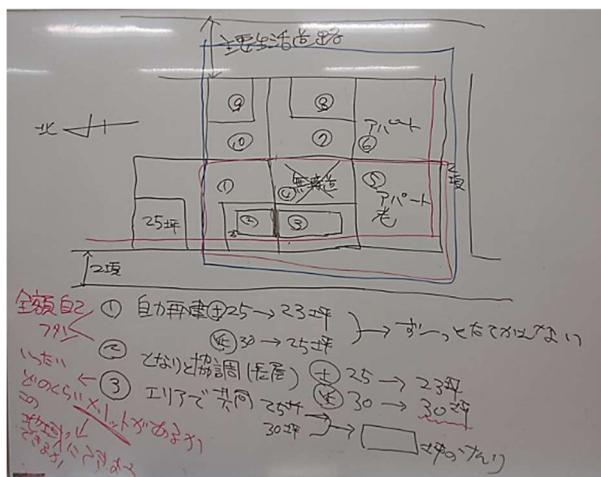 主要生活道路
北
⑨
⑧
⑩
⑦
アパート
⑥
2項
①
④
無接道
⑤
アパート
老
25坪
②
③
2項
全額自己
フタン
① 自力再建 土25→23坪
建30→25坪
→ ずーっとたてかえない
② となりと協調(長屋) 土25→23坪
建30→30坪
③ エリアで共同 25坪
30坪
→ 坪のけんり
いったい
どのくらいメリットがあるか
この